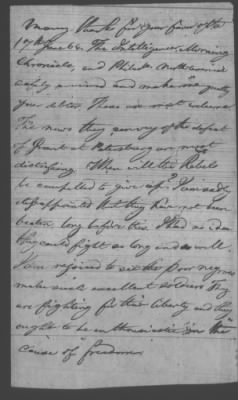 Many thanks for your favor of the
17th June 64. The Intelligencer, Morning
Chronicle, and Philad. North American
safely arrived and make me greatly
your debtor. These are most welcome
The news they convey of the defeat
of Grant at Petersburg are most
distressing. When will the Rebels
be compelled to give up? I am sadly
disappointed that they have not been
beaten long before this. I had no idea
they could fight as long and as well.
I am rejoiced to see the poor negroes
make such excellent soldiers. They
are fighting for their liberty and they
ought to be enthusiastic in the
cause of freedom